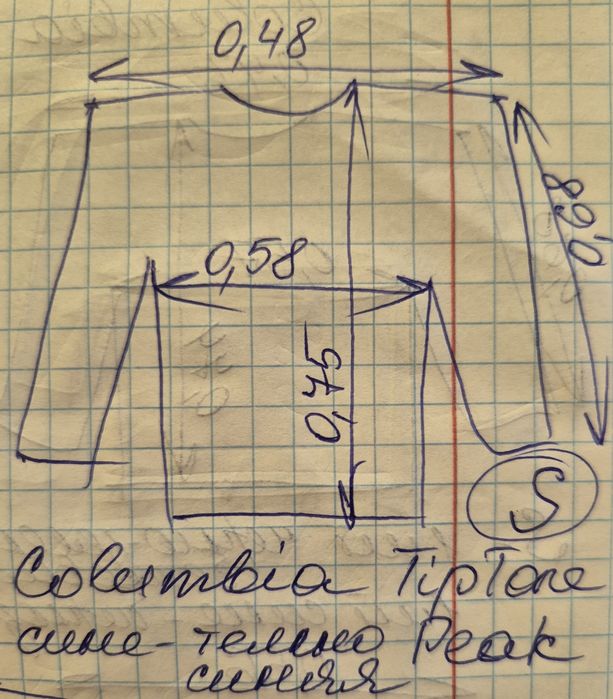 0,48
0,68
0,58
0,75
S
Columbia TipTone
сине-темно Peak
синяя